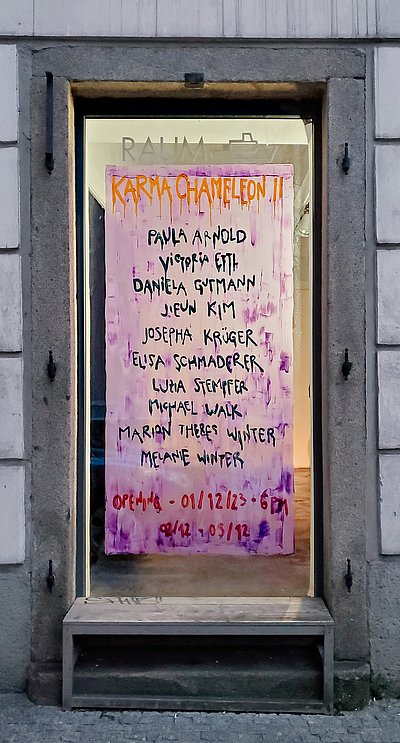 RAUM
KARMA CHAMELEON II
PAULA ARNOLD
VICTORIA ETTL
DANIELA GUTMANN
JIEUN KIM
JOSEPHA KRÜGER
ELISA SCHMADERER
LUZIA STEMPFER
MICHAEL WALK
MARION THERES WINTER
MELANIE WINTER
OPENING - 01/12/23 - 6PM
02/12 - 03/12